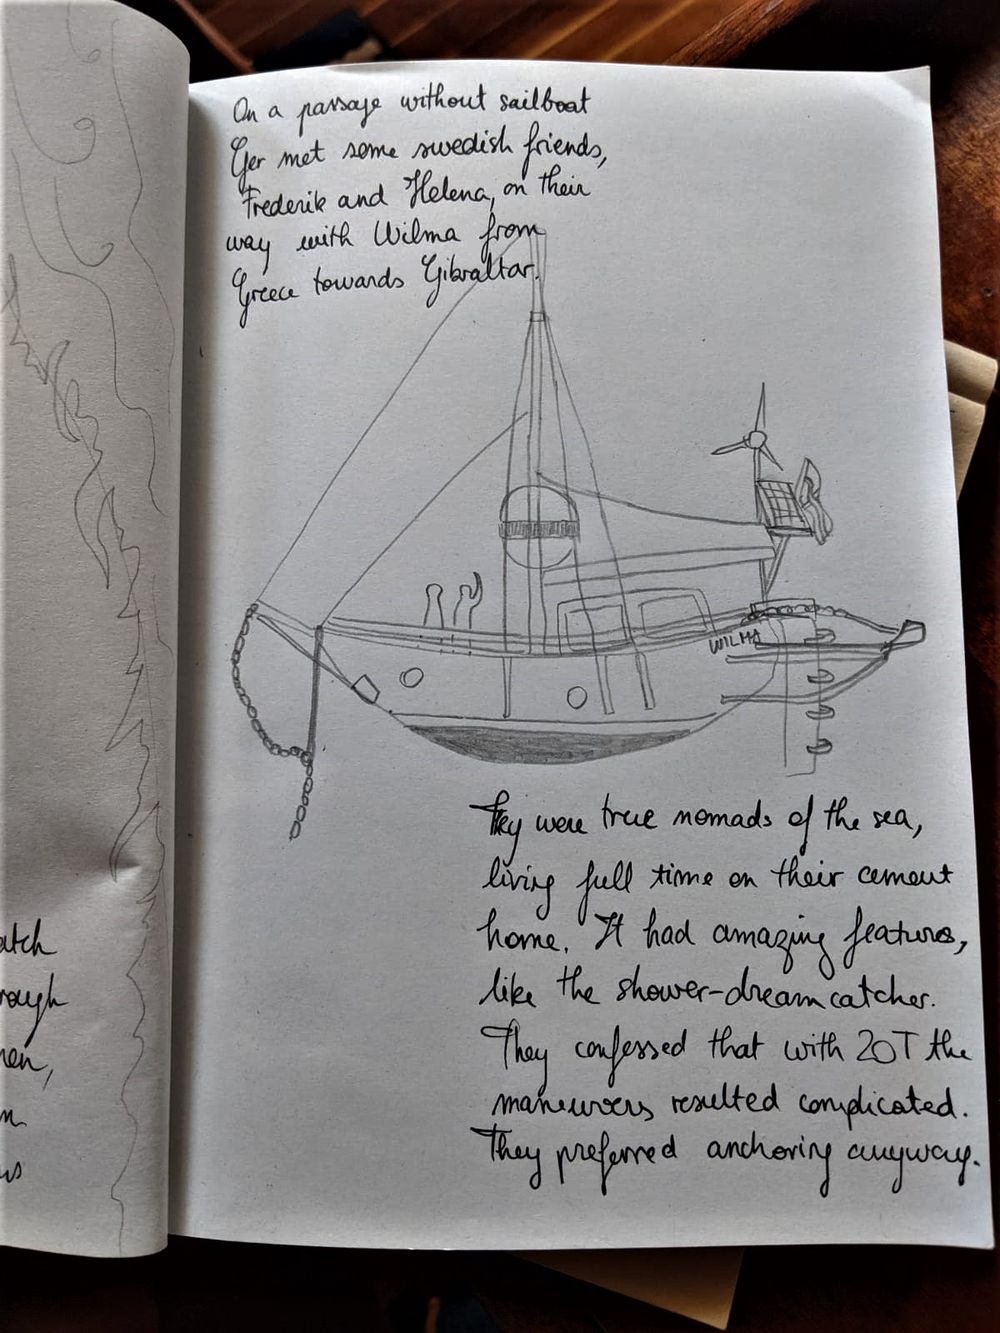 On a passage without sailboat
Ger met some swedish friends,
Frederik and Helena, on their
way with Wilma from
Greece towards Gibraltar.
WILMA
They were true nomads of the sea,
living full time on their cement
home. It had amazing features,
like the shower-dreamcatcher.
They confessed that with 20T the
maneuvers resulted complicated.
They preferred anchoring anyway.
atch
rough
men,
m
us